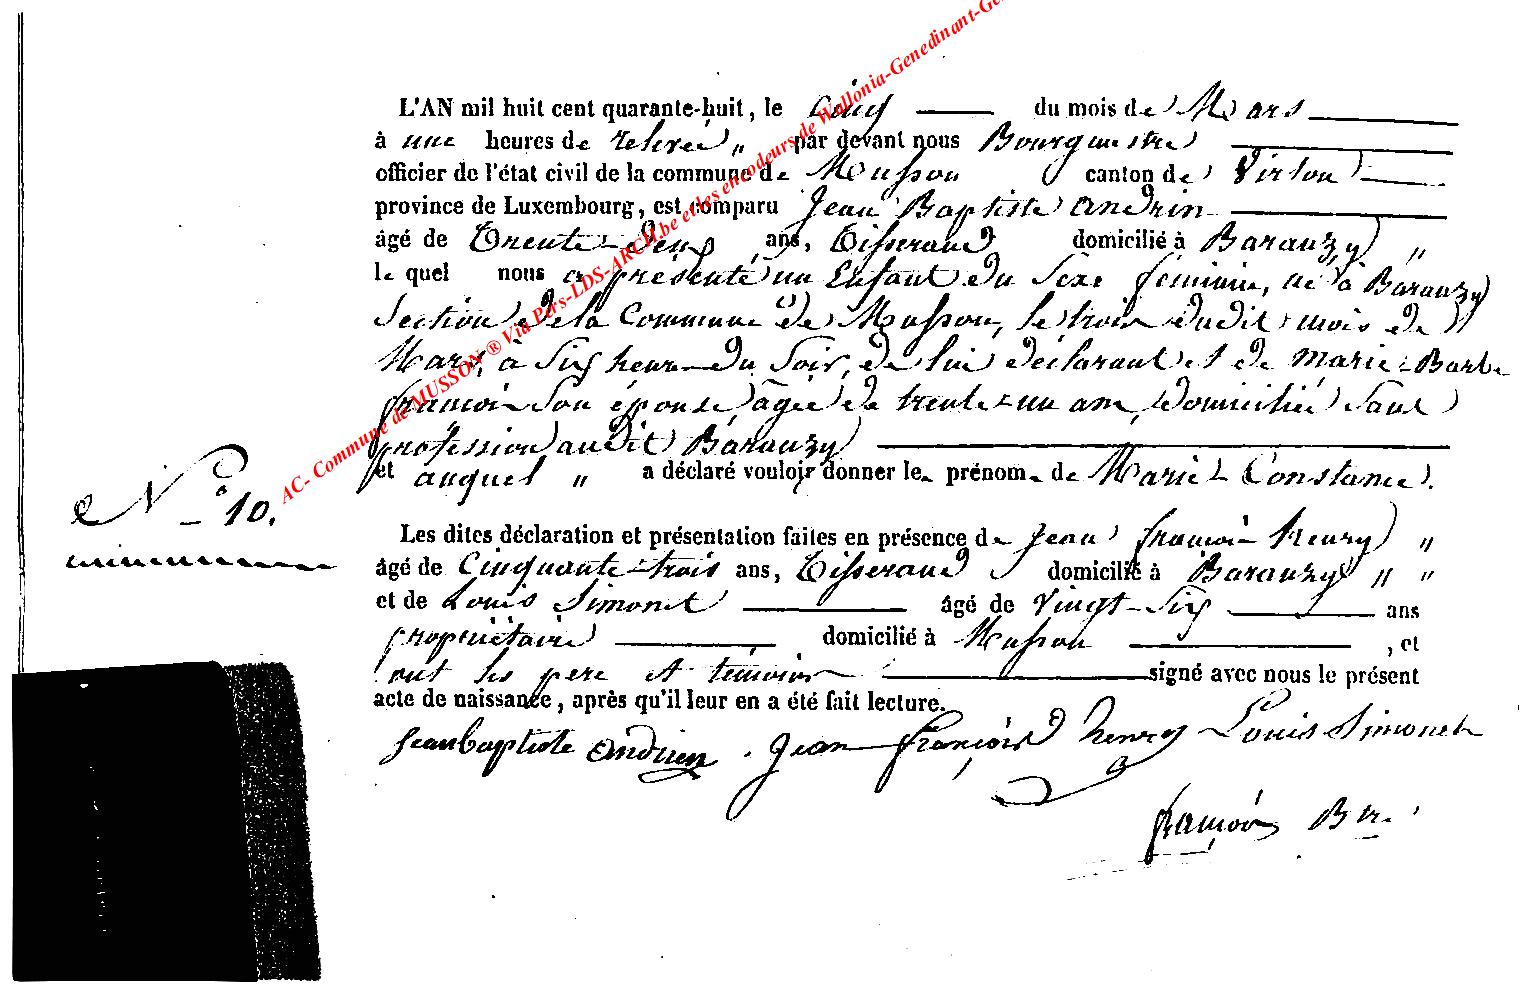 L'AN mil huit cent quarante-huit, le cinq du mois de Mars
à une heures de relevée „ par devant nous Bourgmestre
officier de l'état civil de la commune de Musson canton de Virton
province de Luxembourg, est comparu Jean Baptiste Andrin
âgé de Trente-Six ans, Tisserand domicilié à Baranzy „
le quel nous a présenté un Enfant du Sexe féminin, né à Baranzy
Section de la Commune de Musson, le trois dudit mois de
Mars, à Six heures du Soir, de lui déclarant et de Marie-Barbe
françois Son épouse, âgée de trente-un ans, domiciliée Sans
profession audit Baranzy
et auquel „ a déclaré vouloir donner le prénom de Marie-Constance.
N° 10.
Les dites déclaration et présentation faites en présence de Jean françois henry „
âgé de Cinquante-trois ans, Tisserand domicilié à Baranzy „ „
et de Louis Simonet âgé de Vingt-Six ans
propriétaire domicilié à Musson , et
ont les père et témoins signé avec nous le présent
acte de naissance, après qu'il leur en a été fait lecture.
Jean baptiste andrin . Jean françois henry Louis Simonet
françois
AC- Commune de MUSSON ® Via Pers-LDS-ARCH.be et les encodeurs de Wallonia-Genedinant-Ge